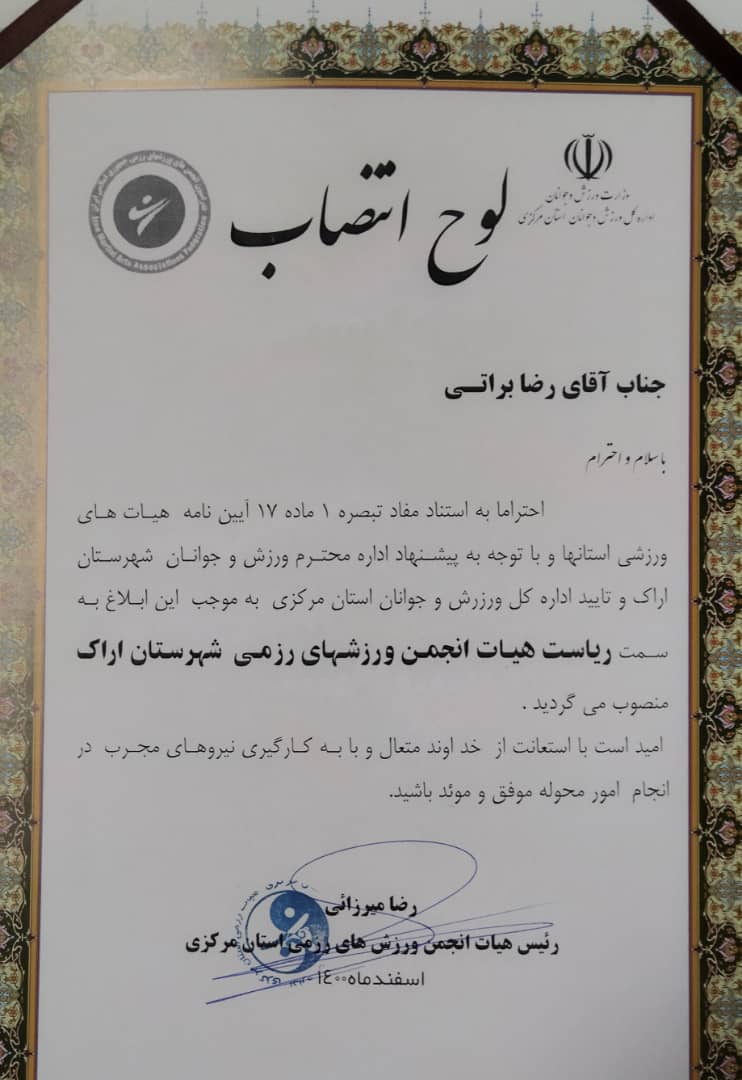 وزارت ورزش و جوانان
اداره کل ورزش و جوانان استان مرکزی
لوح انتصاب
Martial Arts Associations Federation
جناب آقای رضا براتـــی
با سلام و احترام
احتراما به استناد مفاد تبصره ۱ ماده ۱۷ آیین نامه هیات های
ورزشی استانها و با توجه به پیشنهاد اداره محترم ورزش و جوانان شهرستان
اراک و تایید اداره کل ورزرش و جوانان استان مرکزی به موجب این ابلاغ به
سمت ریاست هیات انجمن ورزشهای رزمی شهرستان اراک
منصوب می گردید .
امید است با استعانت از خد اوند متعال و با به کارگیری نیروهای مجرب در
انجام امور محوله موفق و موئد باشید.
رضا میرزائی
رئیس هیات انجمن ورزش های رزمی استان مرکزی
اسفندماه ۱۴۰۰